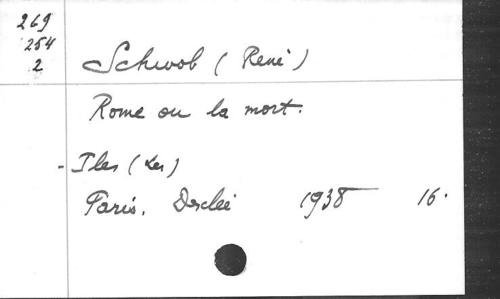 269
254
2
Schwob (René)
Rome ou la mort.
- Iles (Les)
Paris. Desclée 1938 16.